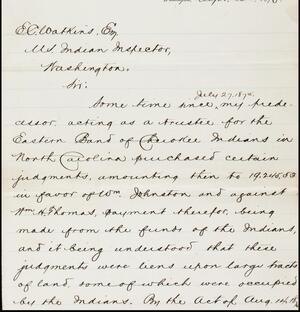 E.C. Watkins, Esq.
U.S. Indian Inspector,
Washington.
Sir:
July 27, 1875.
Some time since, my prede-
cessor, acting as a trustee for the
Eastern Band of Cherokee Indians in
North Carolina purchased certain
judgments, amounting then to 19,245.53
in favor of Wm. Johnston and against
Wm. H. Thomas, payment therefor, being
made from the funds of the Indians,
and it being understood that these
judgments were liens upon large tracts
of land, some of which were occupied
by the Indians. By the Act of Aug. 14th